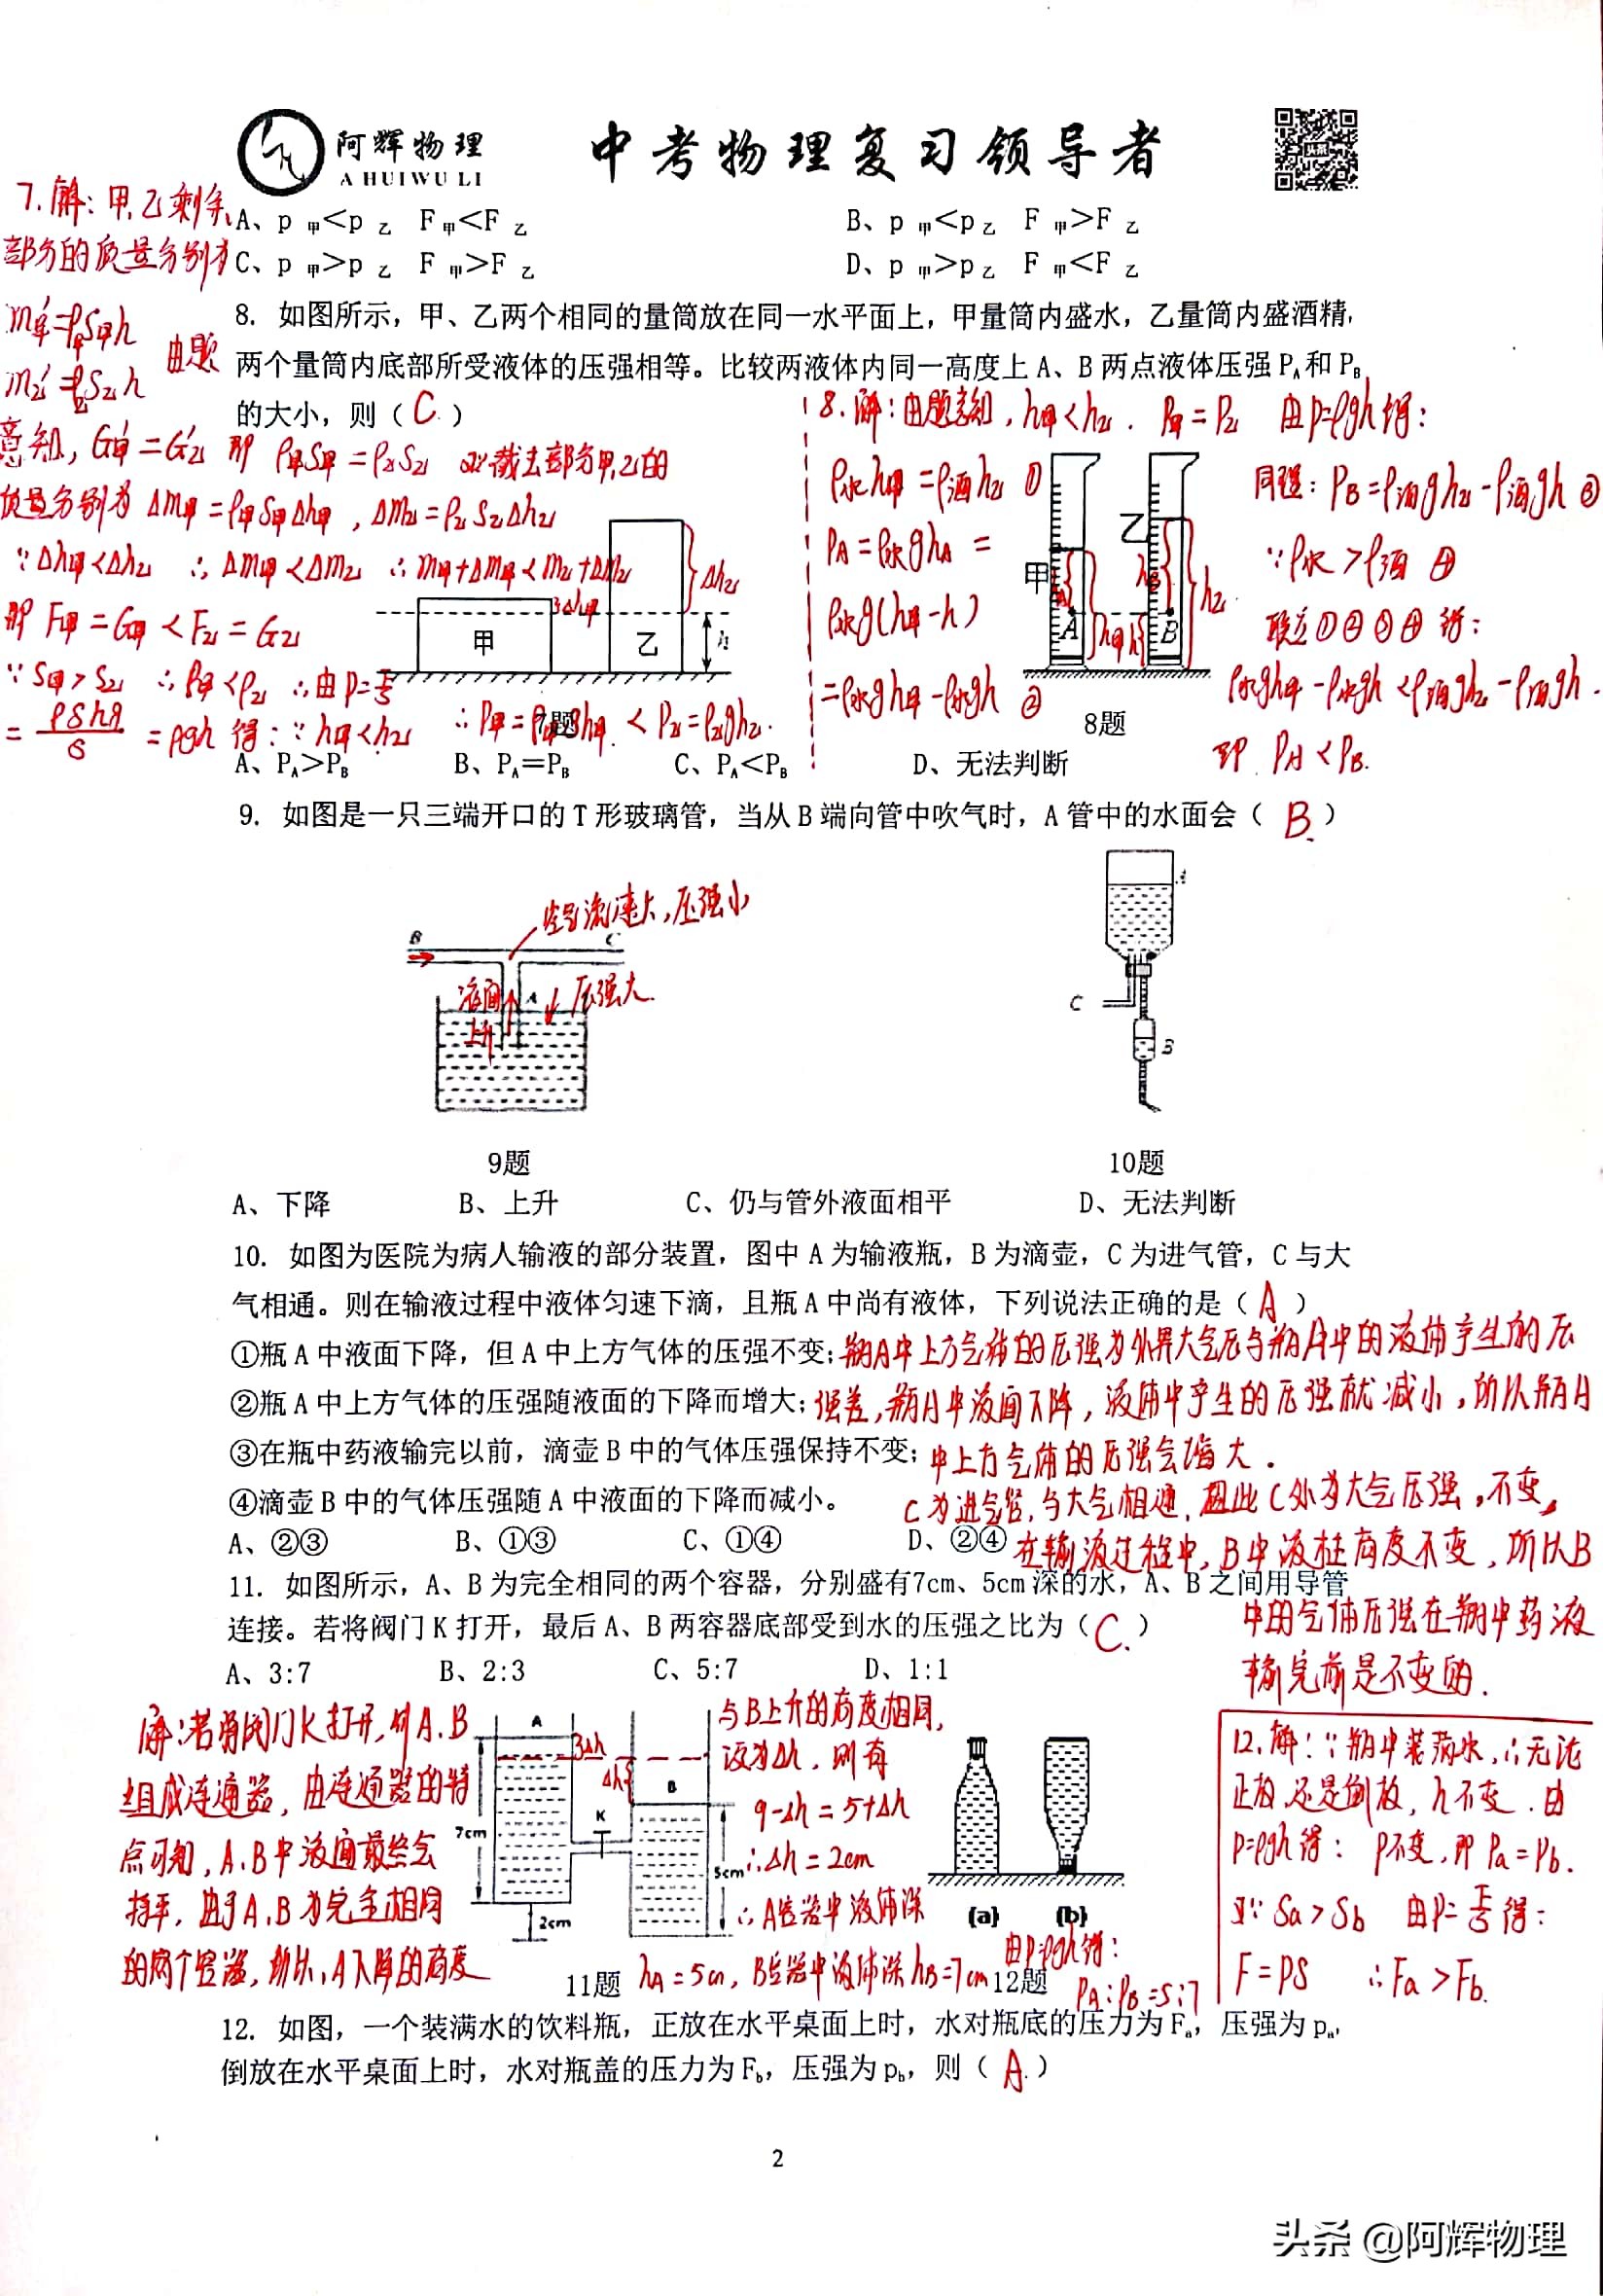 阿辉物理
A HUI WU LI
中考物理复习领导者
7.解：甲、乙剩余
部分的质量分别为
m甲′=ρ甲S甲h
m乙′=ρ乙S乙h
由题
意知，G甲′=G乙′ 即 ρ甲S甲=ρ乙S乙 又∵截去部分甲、乙的
质量分别为 Δm甲=ρ甲S甲Δh甲，Δm乙=ρ乙S乙Δh乙
∵Δh甲<Δh乙 ∴Δm甲<Δm乙 ∴m甲+Δm甲<m乙+Δm乙
即 F甲=G甲<F乙=G乙
∵S甲>S乙 ∴ρ甲<ρ乙 ∴由P=F/S
=ρShg/S=ρgh 得：∵h甲<h乙 ∴P甲=ρ甲gh甲<P乙=ρ乙gh乙.
A、p 甲＜p 乙 F 甲＜F 乙
B、p 甲＜p 乙 F 甲＞F 乙
C、p 甲＞p 乙 F 甲＞F 乙
D、p 甲＞p 乙 F 甲＜F 乙
8. 如图所示，甲、乙两个相同的量筒放在同一水平面上，甲量筒内盛水，乙量筒内盛酒精，
两个量筒内底部所受液体的压强相等。比较两液体内同一高度上 A、B 两点液体压强 PA 和 PB
的大小，则（ C ）
8.解：由题意知，h甲<h乙. P甲=P乙 由P=ρgh得：
ρ水h甲=ρ酒h乙 ①
PA=ρ水ghA=
ρ水g(h甲-h)
=ρ水gh甲-ρ水gh ②
同理：PB=ρ酒gh乙-ρ酒gh ③
∵ρ水>ρ酒 ④
联立①②③④得：
ρ水gh甲-ρ水gh<ρ酒gh乙-ρ酒gh.
即 PA<PB.
甲
乙
Δh甲
Δh乙
h
7题
甲
乙
A
B
h甲
h
h乙
8题
A、PA＞PB B、PA＝PB C、PA＜PB D、无法判断
9. 如图是一只三端开口的 T 形玻璃管，当从 B 端向管中吹气时，A 管中的水面会（ B ）
空气流速大，压强小
B
C
液面
上升
A
压强大.
A
C
B
9题
10题
A、下降 B、上升 C、仍与管外液面相平 D、无法判断
10. 如图为医院为病人输液的部分装置，图中 A 为输液瓶，B 为滴壶，C 为进气管，C 与大
气相通。则在输液过程中液体匀速下滴，且瓶 A 中尚有液体，下列说法正确的是（ A ）
①瓶 A 中液面下降，但 A 中上方气体的压强不变；瓶A中上方气体的压强为外界大气压与瓶A中的液体产生的压
②瓶 A 中上方气体的压强随液面的下降而增大；强差，瓶A中液面下降，液体中产生的压强就减小，所以瓶A
③在瓶中药液输完以前，滴壶 B 中的气体压强保持不变；中上方气体的压强会增大.
④滴壶 B 中的气体压强随 A 中液面的下降而减小。
C为进气管，与大气相通，因此C处为大气压强，不变，
A、②③ B、①③ C、①④ D、②④
在输液过程中，B中液柱高度不变，所以B
中的气体压强在瓶中药液
输完前是不变的.
11. 如图所示，A、B 为完全相同的两个容器，分别盛有7cm、5cm 深的水，A、B 之间用导管
连接。若将阀门 K 打开，最后 A、B 两容器底部受到水的压强之比为（ C. ）
A、3:7 B、2:3 C、5:7 D、1:1
解：若将阀门K打开，则A.B
组成连通器，由连通器的特
点可知，A.B中液面最终会
持平，由于A.B为完全相同
的两个容器，所以，A下降的高度
与B上升的高度相同，
设为Δh，则有
9-Δh=5+Δh
∴Δh=2cm
∴A容器中液体深
hA=5cm，B容器中液体深hB=7cm
由P=ρgh得：
PA:PB=5:7
A
Δh
Δh
B
K
7cm
5cm
2cm
(a)
(b)
11题
12题
12.解：∵瓶中装满水，∴无论
正放，还是倒放，h不变.由
P=ρgh得：P不变，即Pa=Pb.
又∵Sa>Sb 由P=F/S得：
F=PS ∴Fa>Fb.
12. 如图，一个装满水的饮料瓶，正放在水平桌面上时，水对瓶底的压力为 Fa，压强为 pa，
倒放在水平桌面上时，水对瓶盖的压力为 Fb，压强为 pb，则（ A. ）
2
头条 @阿辉物理